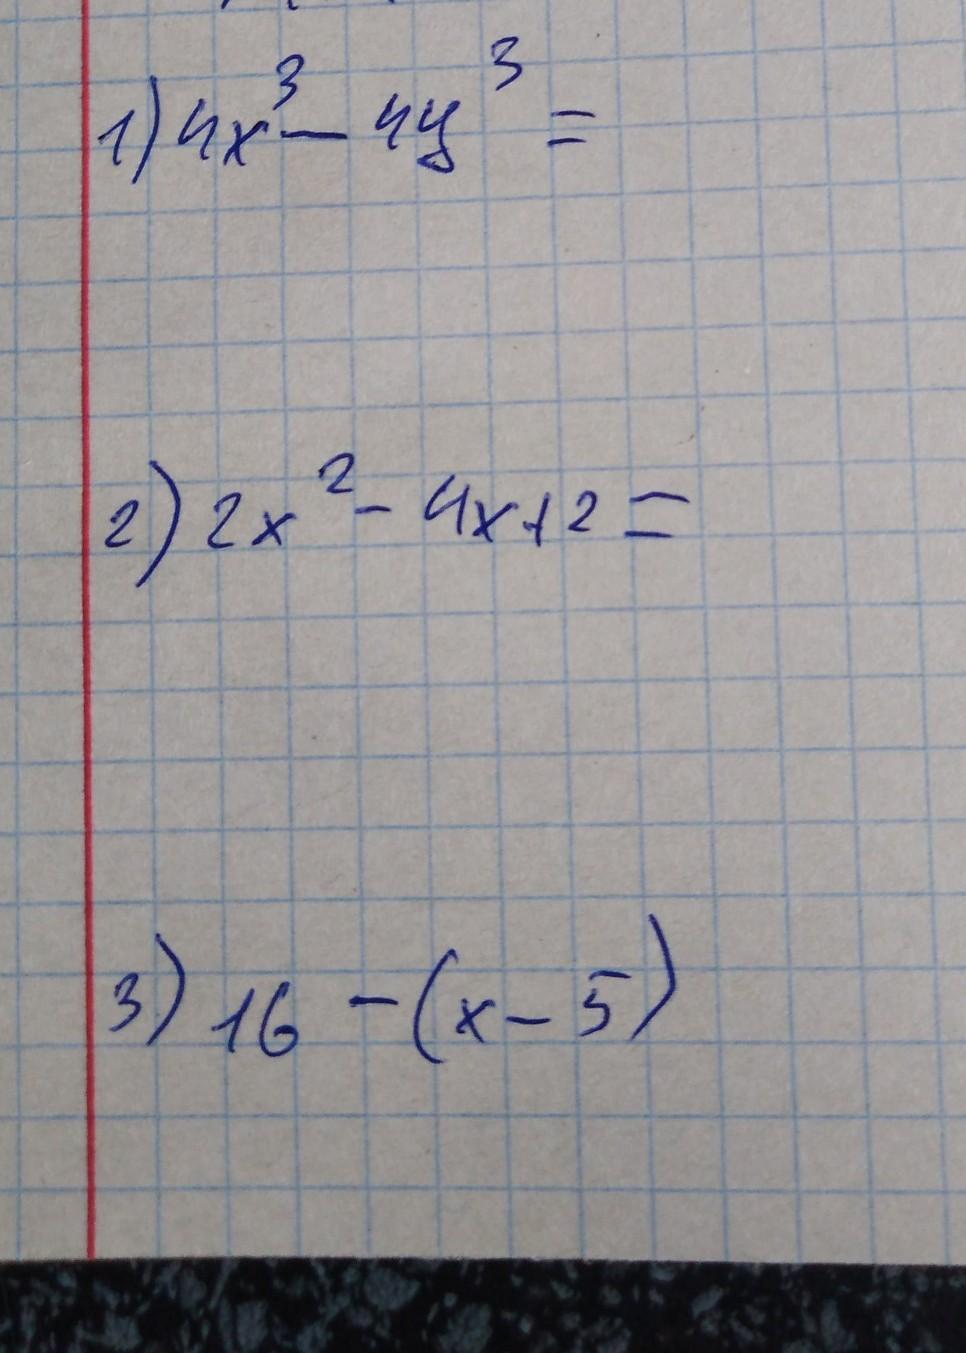 1) 4x³ - 4y³ =
2) 2x² - 4x + 2 =
3) 16 - (x - 5)